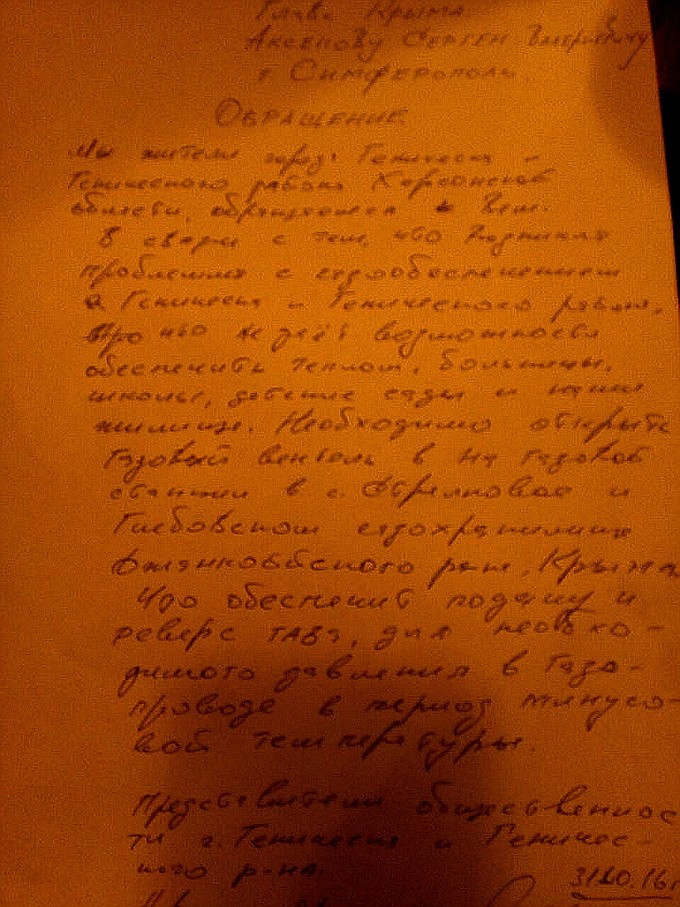 Глава Крыма
Аксенову Сергею Валериевичу
г. Симферополь.
Обращение
Мы жители города Геническа и
Генического района Херсонской
области, обращаемся к Вам.
В связи с тем, что возникла
проблема с газообеспечением
г. Геническа и Генического района,
что не даёт возможности
обеспечить теплом, больницы,
школы, детские сады и наши
жилища. Необходимо открыть
газовый вентель в на газовой
станции в с. Стрелковое и
Глебовском газохранилище
Джанкойского р-на, Крыма
Что обеспечит подачу и
реверс газа, для необхо-
димого давления в газо-
проводе в период минусо-
вой температуры.
Представители общественнос
ти г. Геническа и Геничес-
кого р-на.
31.10.16г